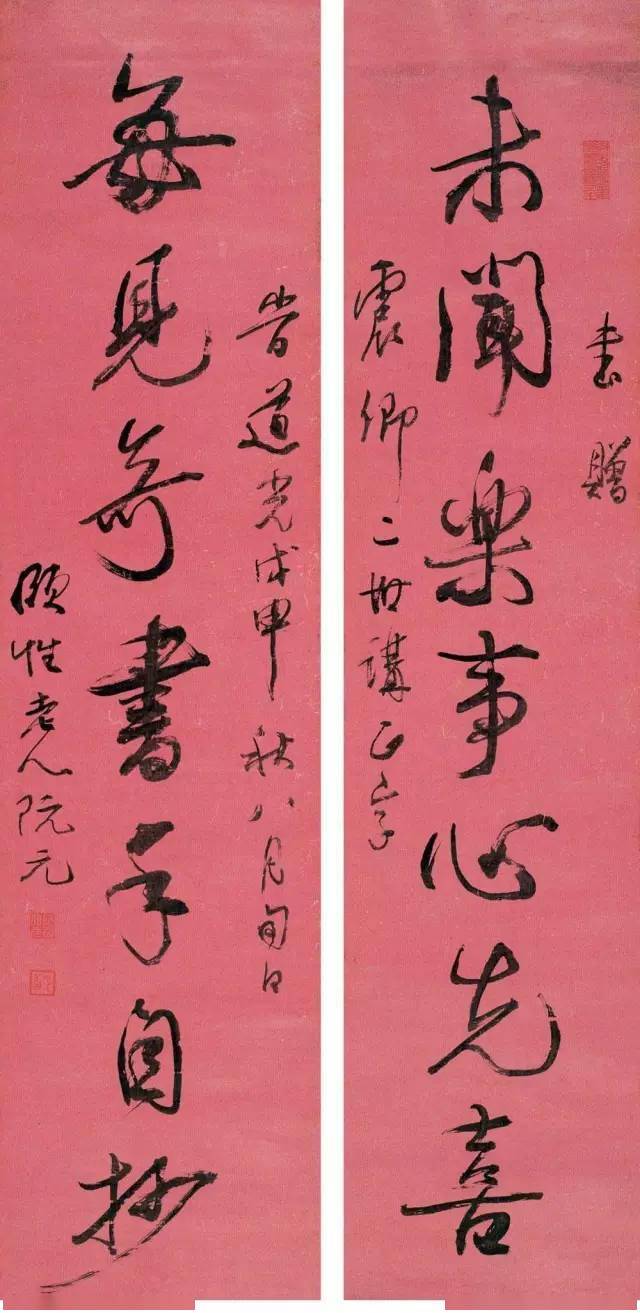 書贈
未聞樂事心先喜
震卿二世講正字
旹道光戊申秋八月旬日
每見奇書手自抄
頤性老人阮元